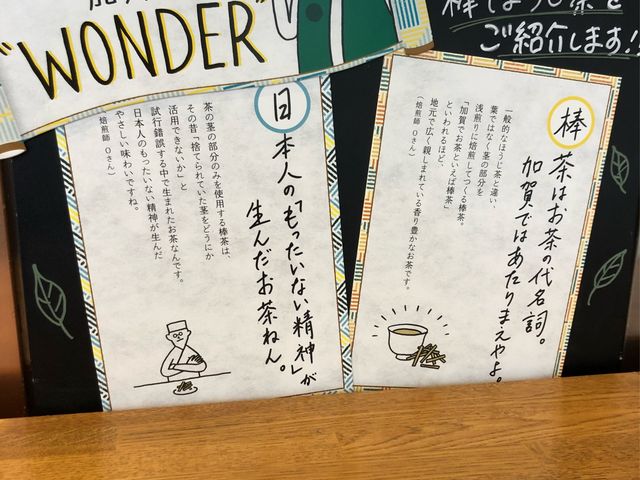 “WONDER”
棒ほうじ茶を
ご紹介します!
棒茶はお茶の代名詞。
加賀ではあたりまえやよ。
一般的なほうじ茶と違い、
葉ではなく茎の部分を
浅煎りに焙煎してつくる棒茶。
「加賀でお茶といえば棒茶」
といわれるほど、
地元で広く親しまれている香り豊かなお茶です。
(焙煎師 Oさん)
日本人の「もったいない精神」が
生んだお茶ねん。
茶の茎の部分のみを使用する棒茶は、
その昔「捨てられていた茎をどうにか
活用できないか」と
試行錯誤する中で生まれたお茶なんです。
日本人のもったいない精神が生んだ
やさしい味わいですね。
(焙煎師 Oさん)